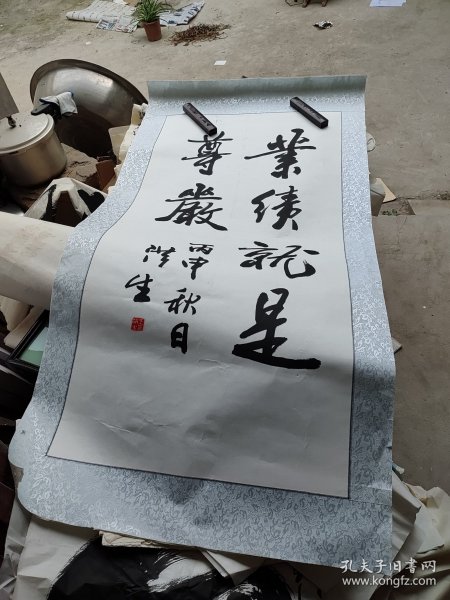 業绩就是
尊嚴
丙申秋日
洪生
孔夫子旧书网
www.kongfz.com